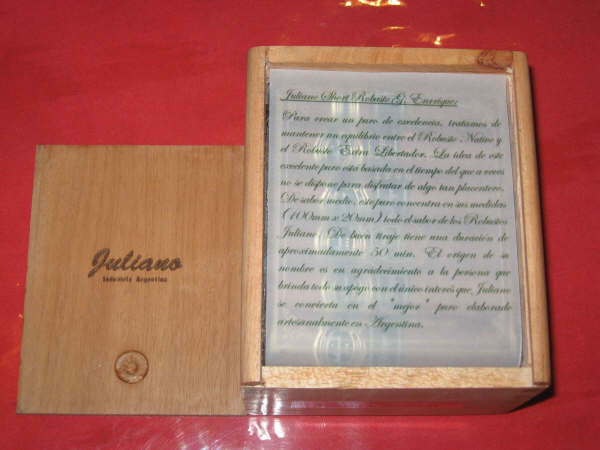 Juliano
Industria Argentina
Juliano Short Robusto G. Enrique:
Para crear un puro de excelencia, tratamos de
mantener un equilibrio entre el Robusto Nativo y
el Robusto Extra Libertador. La idea de este
excelente puro está basada en el tiempo del que a veces
no se dispone para disfrutar de algo tan placentero.
De sabor medio, este puro concentra en sus medidas
(100mm x 20mm) todo el sabor de los Robustos
Juliano. De buen tiraje tiene una duración de
aproximadamente 50 min. El origen de su
nombre es en agradecimiento a la persona que
brinda todo su apoyo con el único interés que, Juliano
se convierta en el "mejor" puro elaborado
artesanalmente en Argentina.